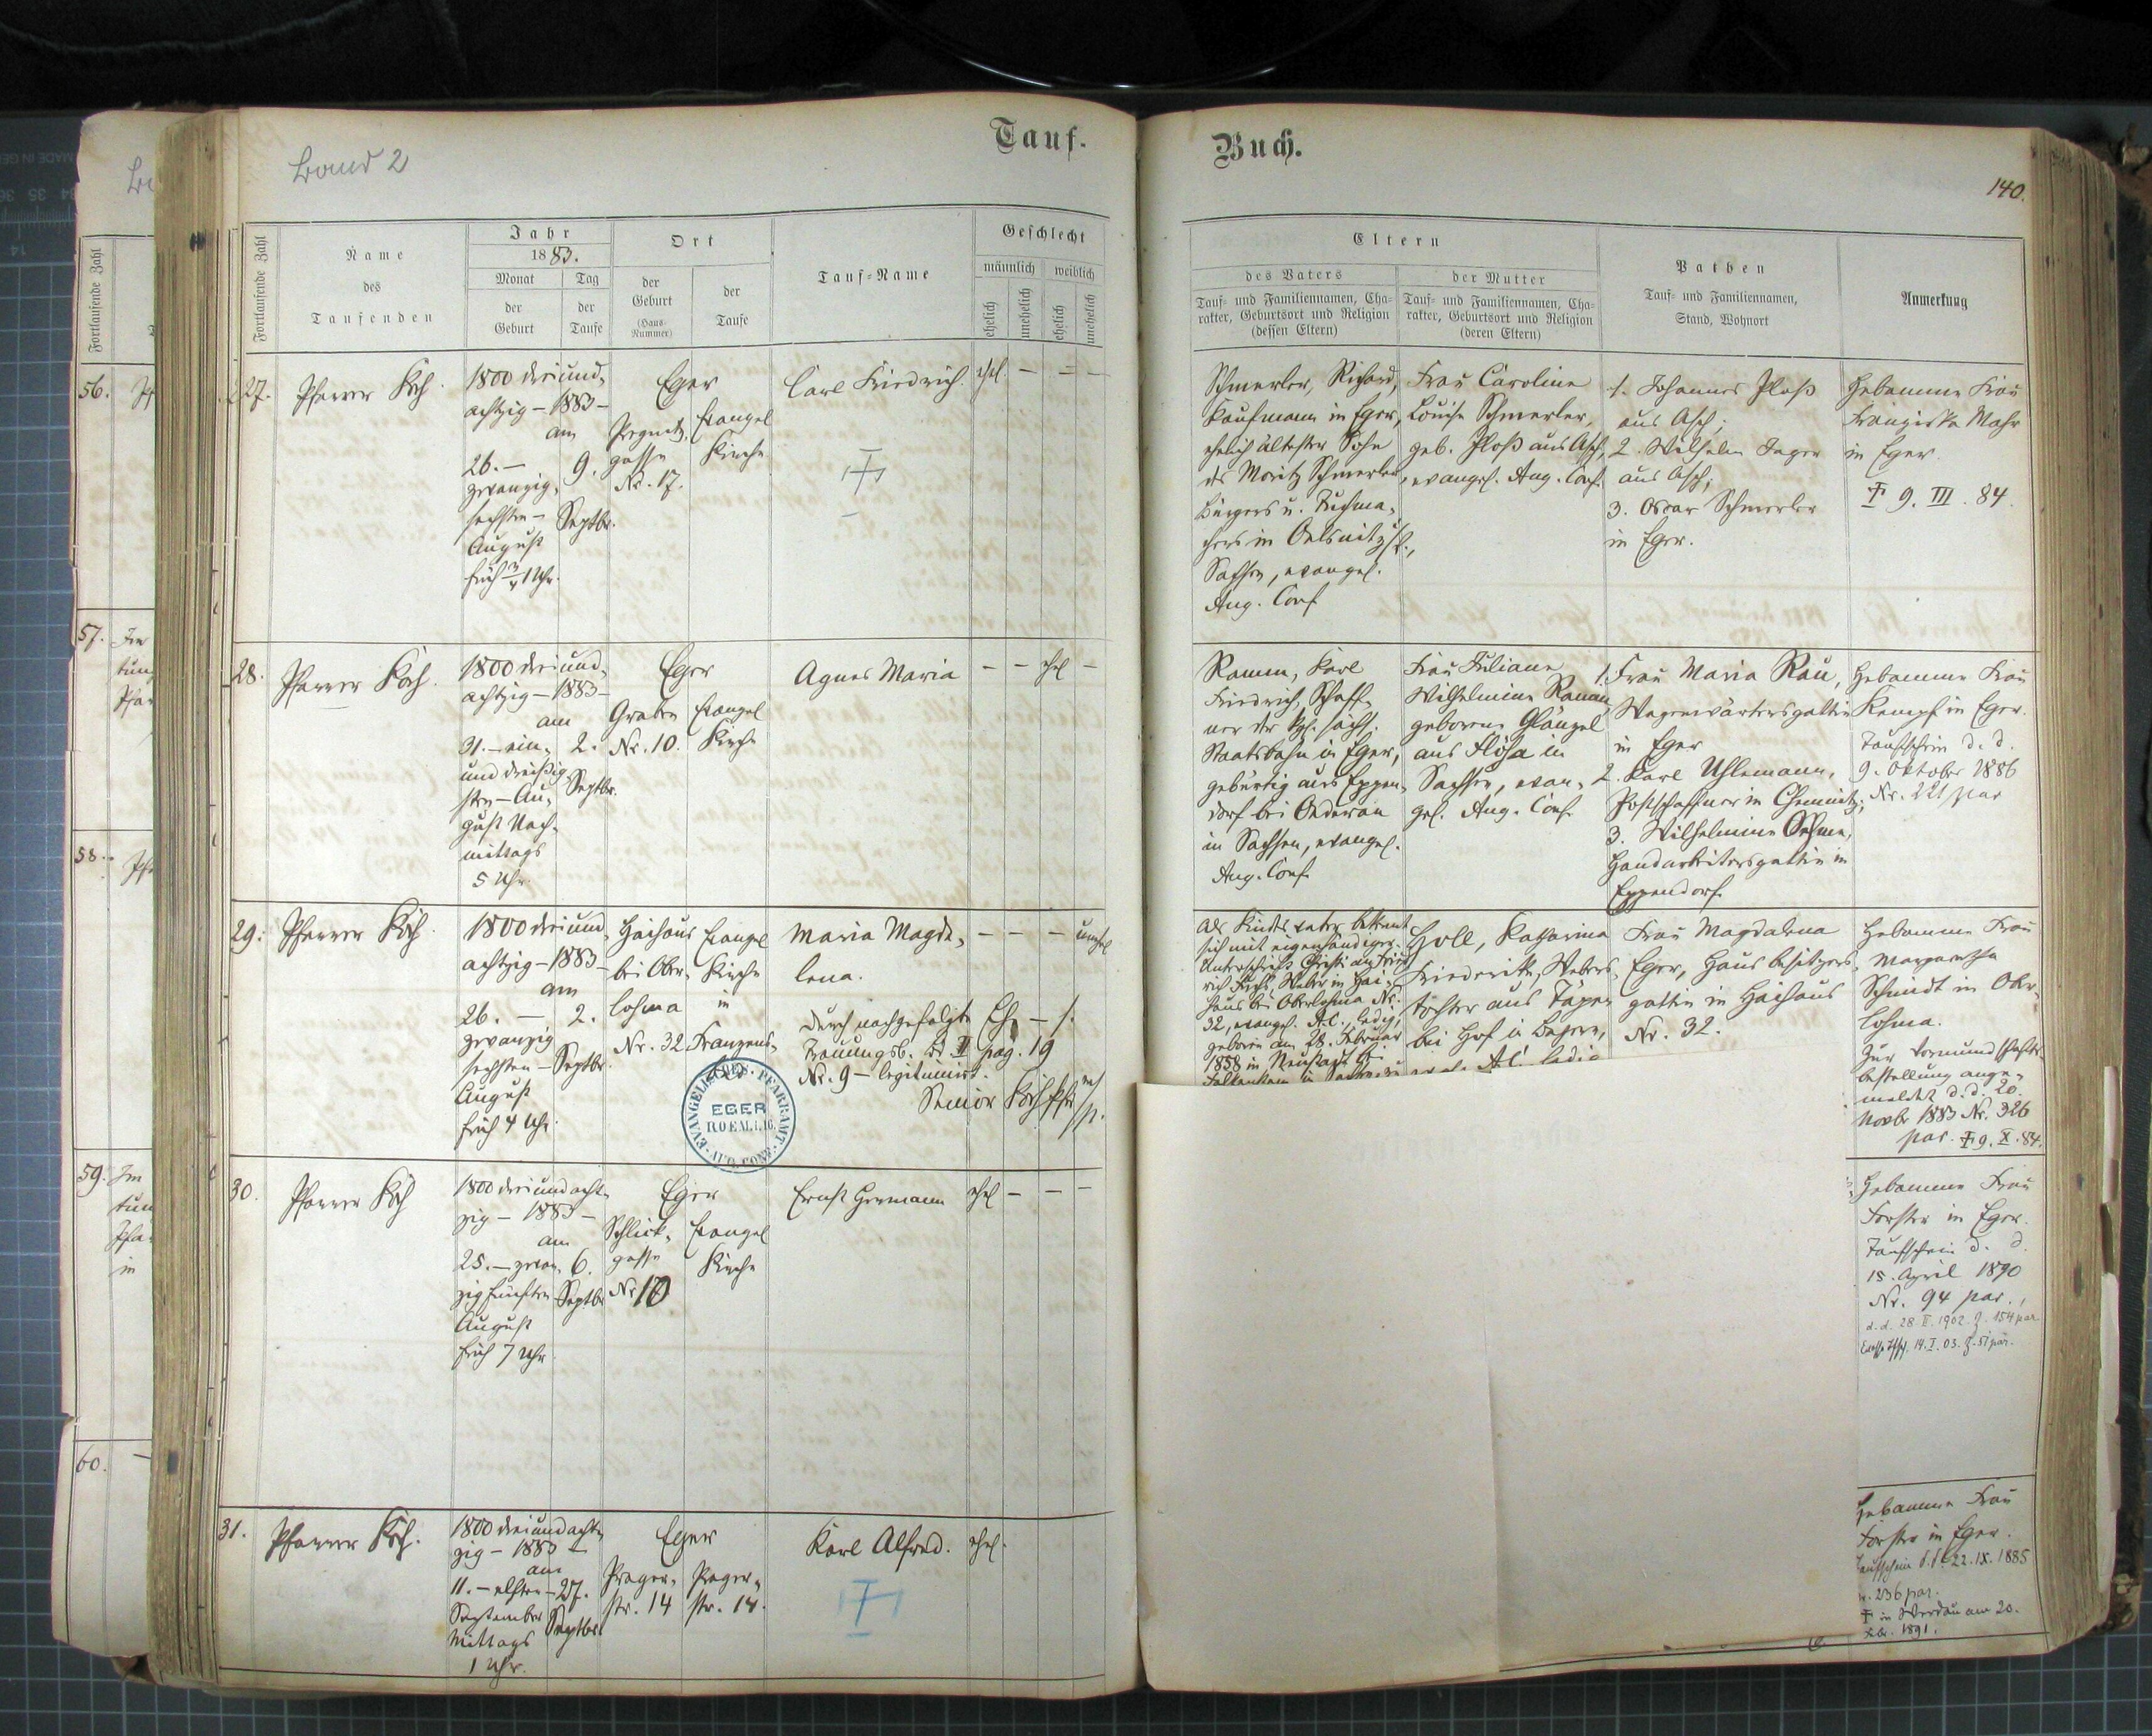 Band 2
Tauf-
Buch.
140.
Fortlaufende Zahl
Name
des
Taufenden
Jahr
1883.
Monat
der
Geburt
Tag
der
Taufe
Ort
der
Geburt
(Haus-
Nummer)
der
Taufe
Tauf-Name
Geschlecht
männlich
weiblich
ehelich
unehelich
ehelich
unehelich
Eltern
des Vaters
Tauf- und Familiennamen, Cha-
rakter, Geburtsort und Religion
(dessen Eltern)
der Mutter
Tauf- und Familiennamen, Cha-
rakter, Geburtsort und Religion
(deren Eltern)
Pathen
Tauf- und Familiennamen,
Stand, Wohnort
Anmerkung
27.
Pfarrer Koch.
1800 dreiund-
achtzig - 1883 -
am
26. -
zwanzig-
sechsten -
August
früh 3/4 1 Uhr.
9.
Septbr.
Eger
gasse
Nr. 17.
Evangel
Kirche
Carl Friedrich.
ehel
Schmerler, Richard,
Kaufmann in Eger,
ehelich ältester Sohn
des Moritz Schmerler,
Bürgers u. Tuchma-
chers in Oelsnitz
Sachsen, evangel.
Aug. Conf
Frau Caroline
Louise Schmerler,
geb. Ploß aus Asch,
evangel. Aug. Conf.
1. Johannes Ploß
aus Asch;
2. Wilhelm Jager
aus Asch;
3. Oscar Schmerler
in Eger.
Hebamme Frau
Franziska Mahr
in Eger.
† 9. III. 84.
28.
Pfarrer Koch.
1800 dreiund-
achtzig - 1883 -
am
31. - ein-
und dreißig
sten - Au-
gust Nach-
mittags
5 Uhr.
2.
Septbr.
Eger
Graben
Nr. 10.
Evangel
Kirche
Agnes Maria
ehel
Ramm, Karl
Friedrich, Schaff-
ner der kgl. sächs.
Staatsbahn in Eger,
gebürtig aus Eppen-
dorf bei Oederan
in Sachsen, evangel.
Aug. Conf.
Frau Juliane
Wilhelmine Ramm
geborene Glänzel
aus Flöha in
Sachsen, evan-
gel. Aug. Conf.
1. Frau Maria Rau,
Wagenwärtersgattin
in Eger
2. Karl Uhlemann,
Postschaffner in Chemnitz;
3. Wilhelmine Oehme,
Handarbeitersgattin in
Eppendorf.
Hebamme Frau
Kempf in Eger.
Taufschein d. d.
9. Oktober 1886
Nr. 221 par
29.
Pfarrer Koch.
1800 dreiund-
achtzig - 1883 -
am
26. -
zwanzig
sechsten -
August
früh 4 Uhr.
2.
Septbr.
Haihaus
bei Ober-
losma
Nr. 32
Evangel
Kirche
in
Franzens-
bad
Maria Magda-
lena.
unehel
Durch nachgefolgte Ehe - s.
Trauungsb. Bd II pag. 19
Nr. 9 - legitimirt.
Senior Koch Pfr
EVANGELISCHES · PFARRAMT ·
EGER
ROEM. 1, 16.
AUG. CONF.
Als Kindes vater bekennt
sich mit eigenhändiger
Unterschrift Christian Fried-
rich Weber in Hai-
haus bei Oberlosma Nr.
32, evangel. A.C., ledig,
geboren am 28. Februar
1858 in Neustadt bei
Falkenstein in Sachsen
Holl, Katharina
Friederike, Webers-
tochter aus Töpen
bei Hof in Bayern,
A.C. ledig
Frau Magdalena
Eger, Hausbesitzers-
gattin in Haihaus
Nr. 32.
Hebamme Frau
Margaretha
Schmidt in Ober-
losma.
Zur Vormundschafts-
bestellung ange-
meldet d.d. 20.
Novbr 1883 Nr. 326
par. † 9. X. 84.
30.
Pfarrer Koch
1800 dreiundacht-
zig - 1883 -
am
25. - zwan-
zigfünften
August
früh 7 Uhr
6.
Septbr
Eger
Schlick-
gasse
Nr 10
Evangel
Kirche
Ernst Hermann
ehel
Hebamme Frau
Forster in Eger.
Taufschein d. d.
15. April 1890
Nr. 94 par.,
d. d. 28. II. 1902. Z. 154 par
14. I. 03. Z. 51 par.
31.
Pfarrer Koch.
1800 dreiundacht-
zig - 1883 -
am
11. - elften -
September
Mittags
1 Uhr.
27.
Septbr.
Eger
Prager-
str. 14
Prager-
str. 14.
Karl Alfred.
ehel.
Hebamme Frau
Forster in Eger.
Taufschein d.d. 22. IX. 1885
Nr. 236 par.
† in Werdau am 20.
1891.
56.
57.
58.
59.
60.